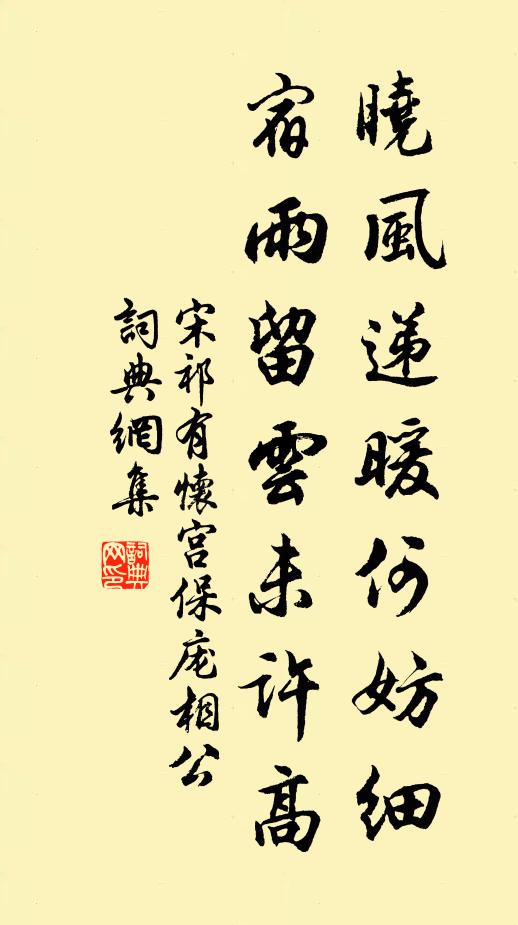 曉風递暖何妨細
宿雨留雲未許高
宋祁有懷宫保庞相公
詞典網集
詞典网印